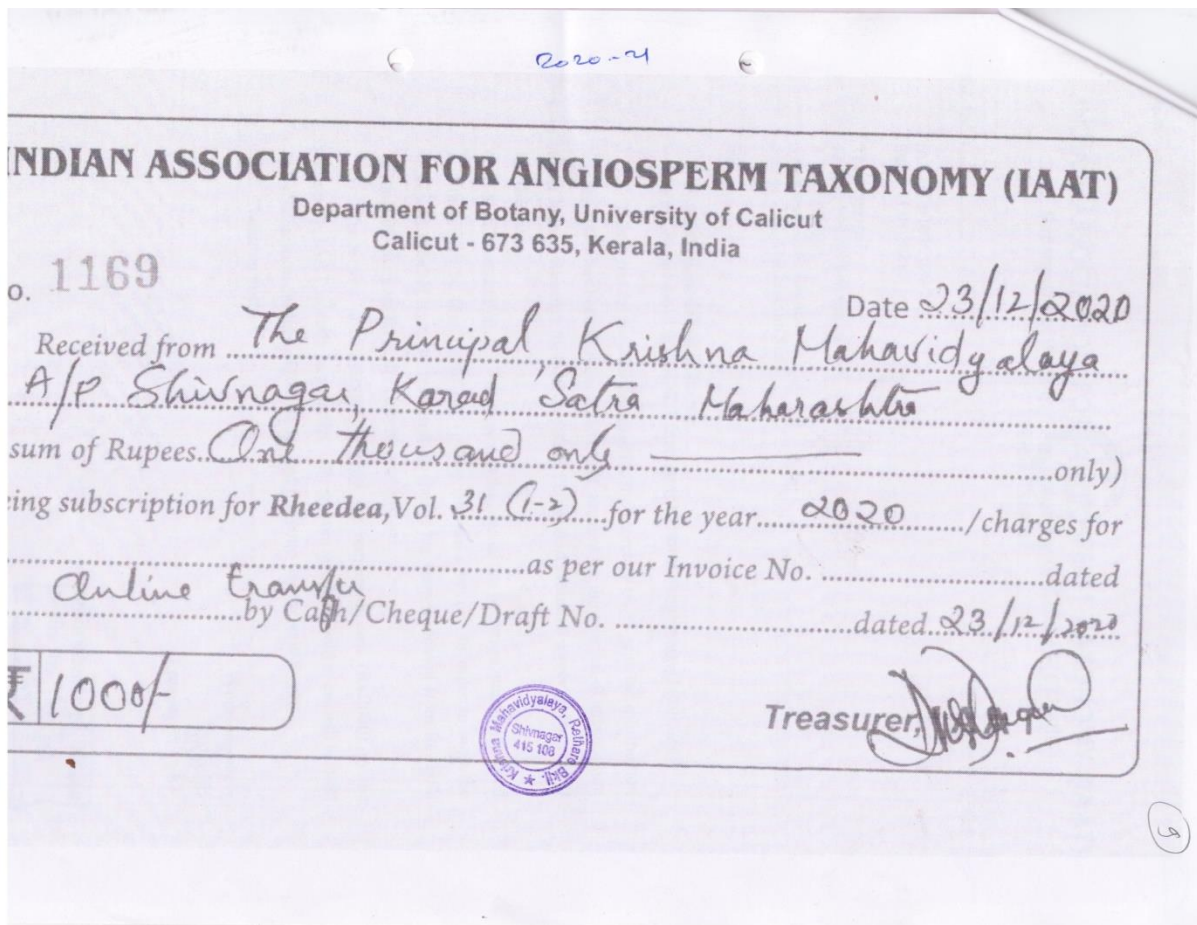 2020-21
INDIAN ASSOCIATION FOR ANGIOSPERM TAXONOMY (IAAT)
Department of Botany, University of Calicut
Calicut - 673 635, Kerala, India
o. 1169
Date 23/12/2020
Received from The Principal, Krishna Mahavidyalaya
A/P Shivnagar, Karad Satra Maharashtra
sum of Rupees. One thousand only only)
ing subscription for Rheedea, Vol. 31 (1-2) for the year 2020 /charges for
as per our Invoice No. dated
Online transfer by Cash/Cheque/Draft No. dated 23/12/2020
₹ 1000/-
Treasurer,
Krishna Mahavidyalaya, Rethare Bk.
Shivnagar
415 108
9